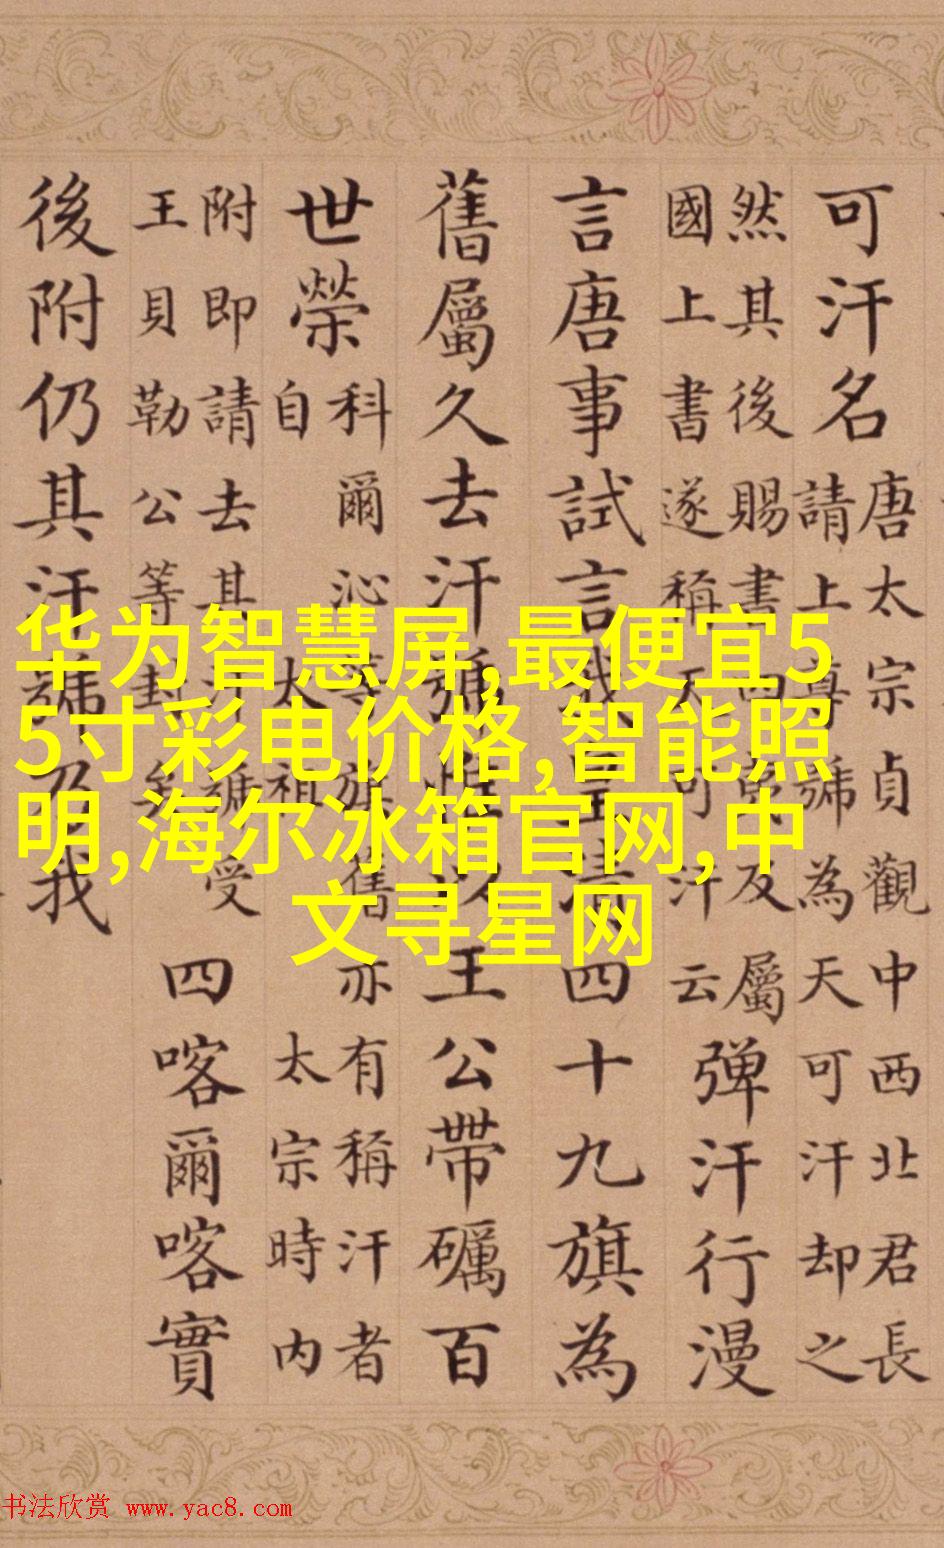 可汗名唐太宗貞觀中西北君長請上尊號為天可汗却之
然其後賜書四夷及屬國上書遂稱天可汗云弹汗行漫
言唐事試言我皇清四十九旗為
舊屬久去汗號惟以王公帶礪百
世榮科爾沁旗舊亦有稱汗者自太祖太宗時内
附即請去其汗號受王貝勒公等封矣四喀爾喀實
後附仍其汗號乃我
华为智慧屏,最便宜5
5寸彩电价格,智能照
明,海尔冰箱官网,中
文寻星网
书法欣赏 www.yac8.com